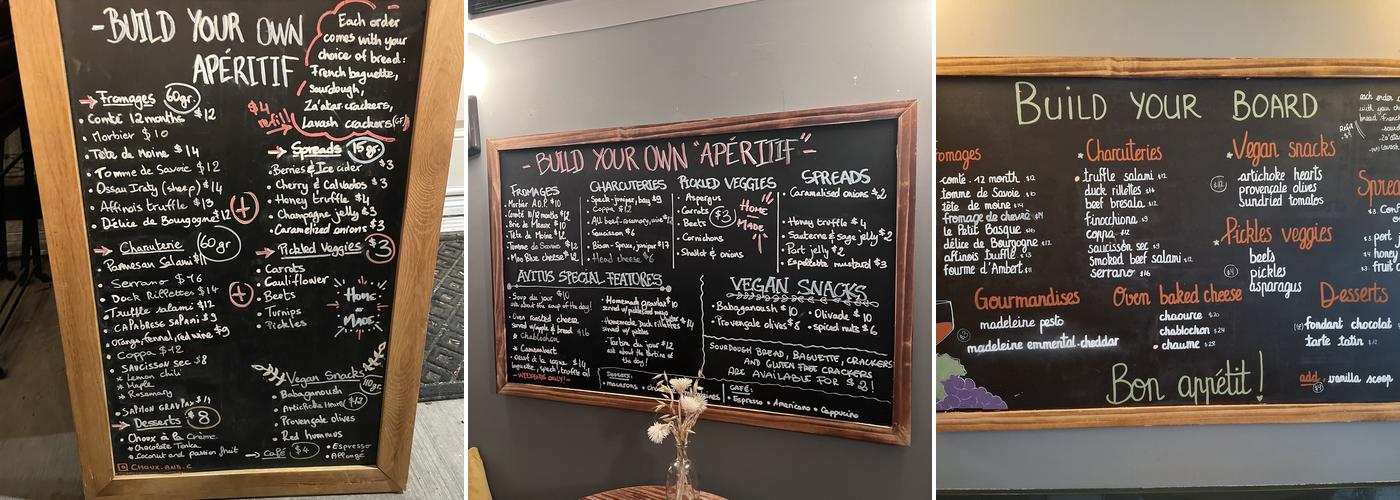 -BUILD YOUR OWN
APÉRITIF
Each order
comes with your
choice of bread:
French baguette,
sourdough,
Za'atar crackers,
Lavash crackers (GF)
$4
refill
→ Fromages 60gr.
• Comté 12 months $12
• Morbier $10
• Tête de moine $14
• Tomme de Savoie $12
• Ossau Iraty (sheep) $14
• Affinois truffle $13
• Délice de Bourgogne $12
→ Charcuterie 60gr
• Parmesan Salami $11
• Serrano $16
• Duck Rillettes $14
• Truffle salami $12
• Calabrese salami $9
• Orange, fennel, red wine $9
• Coppa $12
• Saucisson sec $8
* Lemon chili
* Maple
* Rosemary
• Salmon Gravlax $14
→ Desserts $8
• Choux à la Crème
* Chocolate Tonka
* Coconut and passion fruit
CHOUX.AND.C
→ Spreads 15gr.
• Berries & Ice cider $3
• Cherry & Calvados $3
• Honey truffle $4
• Champagne jelly $3
• Caramelized onions $3
→ Pickled Veggies $3
• Carrots
• Cauliflower
• Beets
• Turnips
• Pickles
Home
MADE
Vegan Snacks
110gr.
• Babaganoush
• Artichoke Heart $12
• Provençale olives
• Red hummus
→ Café $4
• Espresso
• Allongé
- BUILD YOUR OWN "APÉRITIF" -
FROMAGES
• Morbier A.O.P. $10
• Comté 10/12 months $12
• Brie de Meaux $10
• Tête de Moine $12
• Tomme de Savoie $12
• Moo Blue cheese $12
CHARCUTERIES
• Speck - juniper, bay $9
• Coppa $12
• All beef - rosemary, wine $12
• Saucisson $6
• Bison - spruce, juniper $13
• Head cheese $6
PICKLED VEGGIES
• Asperges
• Carrots
• Beets
• Cornichons
• Shallot & onions
$3
HOME
MADE
SPREADS
• Caramelised onions $2
• Honey truffle $4
• Sauterne & sage jelly $2
• Port jelly $2
• Espelette mustard $3
AVITUS SPECIAL FEATURES
• Soup du jour $10
ask about the soup of the day!
• Oven roasted cheese
served w/ apple & bread $16
* Chablochon
* Camembert
• Oeuf à la coque $14
baguette, speck, truffle oil
- WEEKENDS ONLY! -
• Homemade gravlax $10
served w/ pickled
• Homemade Duck rillettes
served w/ pickles
• Tartine du jour $12
ask about the tartine of
the day!
Desserts:
• macarons
VEGAN SNACKS
• Babaganoush $10
• Olivade $10
• Provençale olives $8
• spiced nuts $6
SOURDOUGH BREAD, BAGUETTE, CRACKERS
AND GLUTEN FREE CRACKERS
ARE AVAILABLE FOR $2!
CAFÉ:
• Espresso • Americano • Cappucino
BUILD YOUR BOARD
omages
comté 12 month $12
tomme de savoie $10
tête de moine $14
fromage de chèvre $14
le Petit Basque
délice de Bourgogne $12
affinois truffle $13
fourme d'Ambert
Charcuteries
truffle salami $12
duck rillettes
beef bresala $12
finocchiona
coppa $12
saucisson sec $9
smoked beef salami $12
serrano $16
Vegan snacks
artichoke hearts
provençale olives
sundried tomatos
Pickles veggies
beets
pickles
asparagus
each order
with your
bread: French
Refill
Sprea
$3 port j
$4 honey
$3 fruit
Gourmandises
madeleine pesto
madeleine emmental-cheddar
Oven baked cheese
chaource $20
chablochon $24
chaume $23
Desserts
fondant chocolat
tarte tatin $12
add vanilla scoop
Bon appétit!